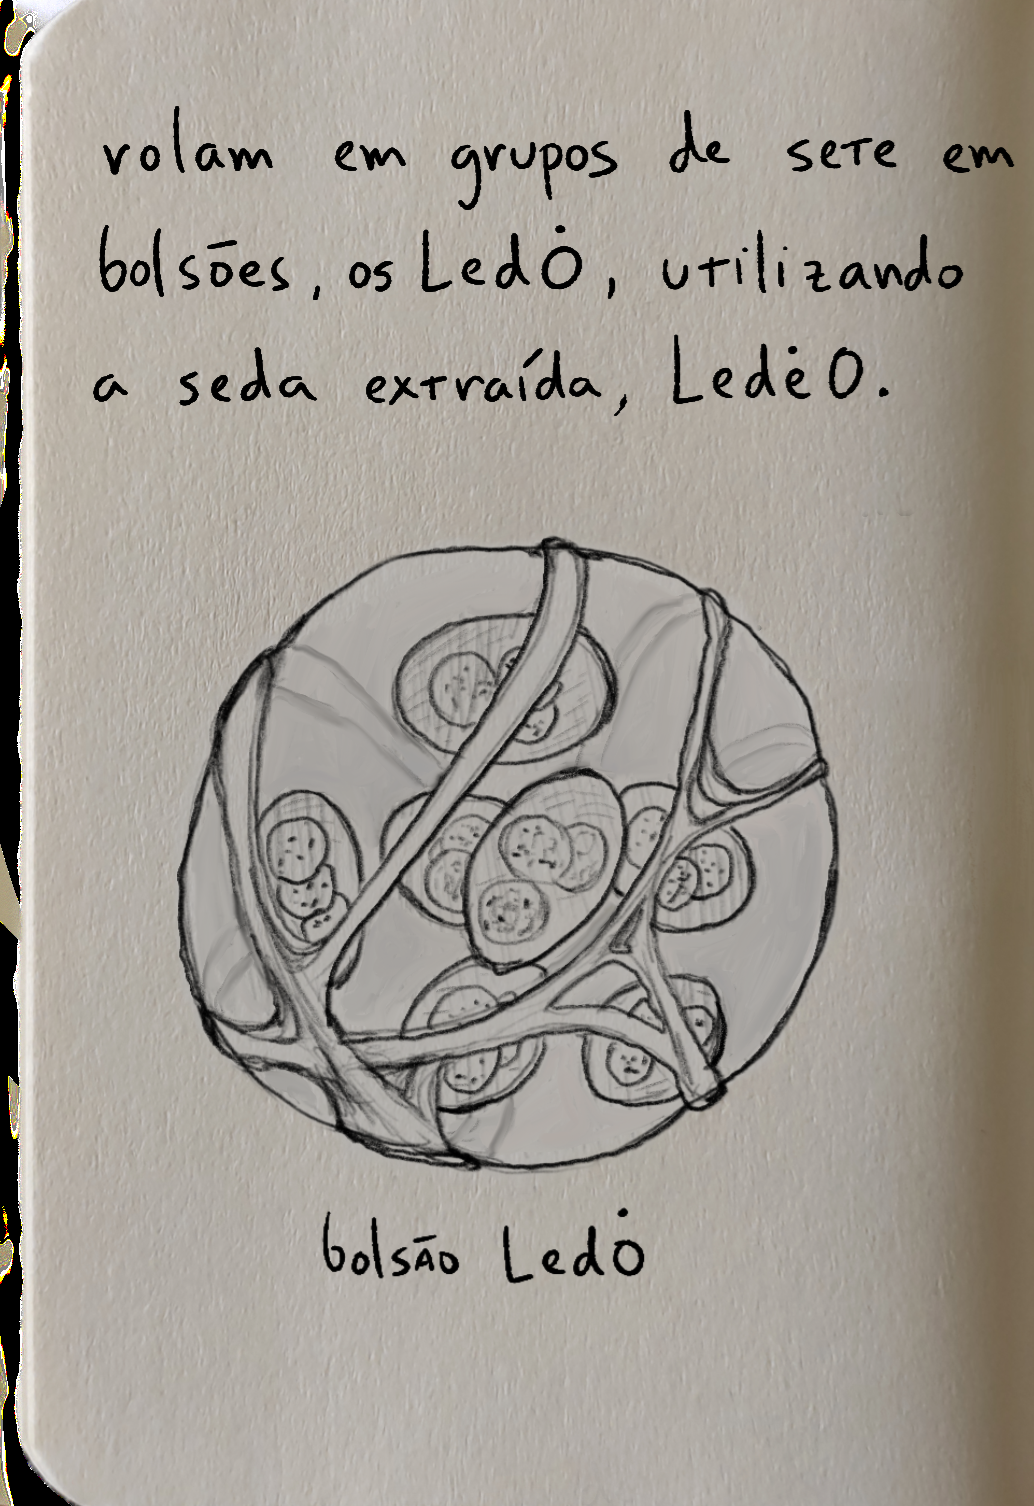 rolam em grupos de sete em
bolsões, os LedȮ, utilizando
a seda extraída, LedėO.
bolsão LedȮ